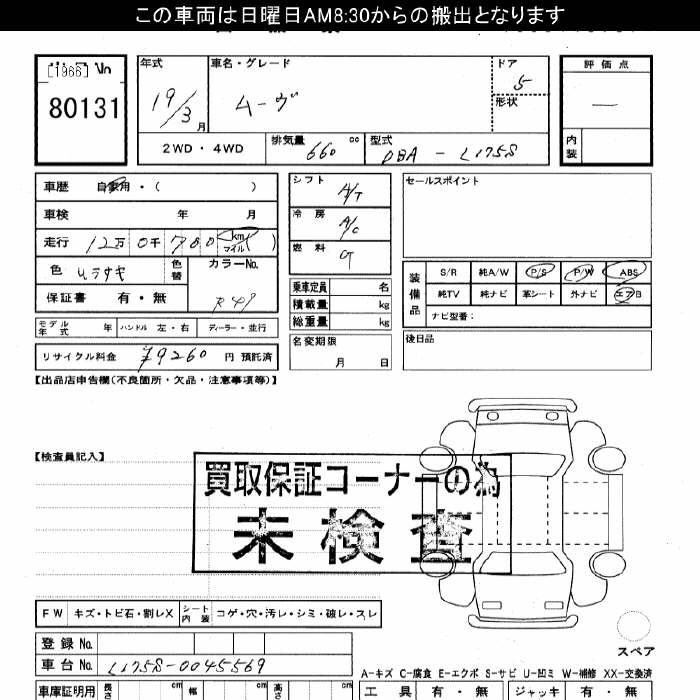 この車両は日曜日AM8:30からの搬出となります
[1966] No
80131
年式
19/3 月
車名・グレード
ムーヴ
ドア
5
形状
評価点
—
内装
2WD・4WD
排気量 660 cc
型式 DBA - L175S
車歴 自家用・( )
車検 年 月
走行 12万0千780 km マイル ( )
色 ムラサキ 色替
カラーNo.
保証書 有・無
モデル年式 年 ハンドル 左・右 ディーラー・並行
リサイクル料金 ¥9260 円 預託済
シフト A/T
冷房 A/C
燃料 G
乗車定員 名
積載量 kg
総重量 kg
名変期限
月 日
セールスポイント
装備品
S/R 純A/W P/S P/W ABS
純TV 純ナビ 革シート 外ナビ エアB
ナビ型番:
後日品
【出品店申告欄(不良箇所・欠品・注意事項等)】
【検査員記入】
買取保証コーナーの為
未検査
FW キズ・トビ石・割レX シート内装 コゲ・穴・汚レ・シミ・破レ・スレ
スペア
登録No.
車台No. L175S-0045569
A-キズ C-腐食 E-エクボ S-サビ U-凹ミ W-補修 XX-交換済
車庫証明用 長さ cm 幅 cm 高さ cm
工具 有・無 ジャッキ 有・無